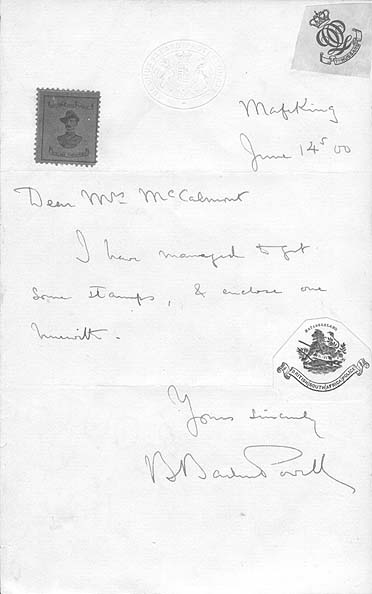 Mafeking
June 14th 00
Dear Mrs McCalmont
I have managed to get
some stamps, & enclose one
herewith.
MATABELELAND
BRITISH SOUTH AFRICA POLICE
Yours sincerely